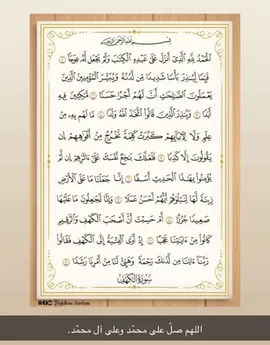 بِسْمِ اللَّهِ الرَّحْمَنِ الرَّحِيمِ
الْحَمْدُ لِلَّهِ الَّذِي أَنْزَلَ عَلَى عَبْدِهِ الْكِتَابَ وَلَمْ يَجْعَلْ لَهُ عِوَجًا ۝
قَيِّمًا لِيُنْذِرَ بَأْسًا شَدِيدًا مِنْ لَدُنْهُ وَيُبَشِّرَ الْمُؤْمِنِينَ الَّذِينَ
يَعْمَلُونَ الصَّالِحَاتِ أَنَّ لَهُمْ أَجْرًا حَسَنًا ۝ مَاكِثِينَ فِيهِ
أَبَدًا ۝ وَيُنْذِرَ الَّذِينَ قَالُوا اتَّخَذَ اللَّهُ وَلَدًا ۝ مَا لَهُمْ بِهِ مِنْ
عِلْمٍ وَلَا لِآبَائِهِمْ كَبُرَتْ كَلِمَةً تَخْرُجُ مِنْ أَفْوَاهِهِمْ إِنْ
يَقُولُونَ إِلَّا كَذِبًا ۝ فَلَعَلَّكَ بَاخِعٌ نَفْسَكَ عَلَى آثَارِهِمْ إِنْ لَمْ
يُؤْمِنُوا بِهَذَا الْحَدِيثِ أَسَفًا ۝ إِنَّا جَعَلْنَا مَا عَلَى الْأَرْضِ
زِينَةً لَهَا لِنَبْلُوَهُمْ أَيُّهُمْ أَحْسَنُ عَمَلًا ۝ وَإِنَّا لَجَاعِلُونَ مَا عَلَيْهَا
صَعِيدًا جُرُزًا ۝ أَمْ حَسِبْتَ أَنَّ أَصْحَابَ الْكَهْفِ وَالرَّقِيمِ
كَانُوا مِنْ آيَاتِنَا عَجَبًا ۝ إِذْ أَوَى الْفِتْيَةُ إِلَى الْكَهْفِ فَقَالُوا
رَبَّنَا آتِنَا مِنْ لَدُنْكَ رَحْمَةً وَهَيِّئْ لَنَا مِنْ أَمْرِنَا رَشَدًا ۝
سُورَةُ الْكَهْفِ
اللهم صلِّ على محمّد وعلى آل محمّد.